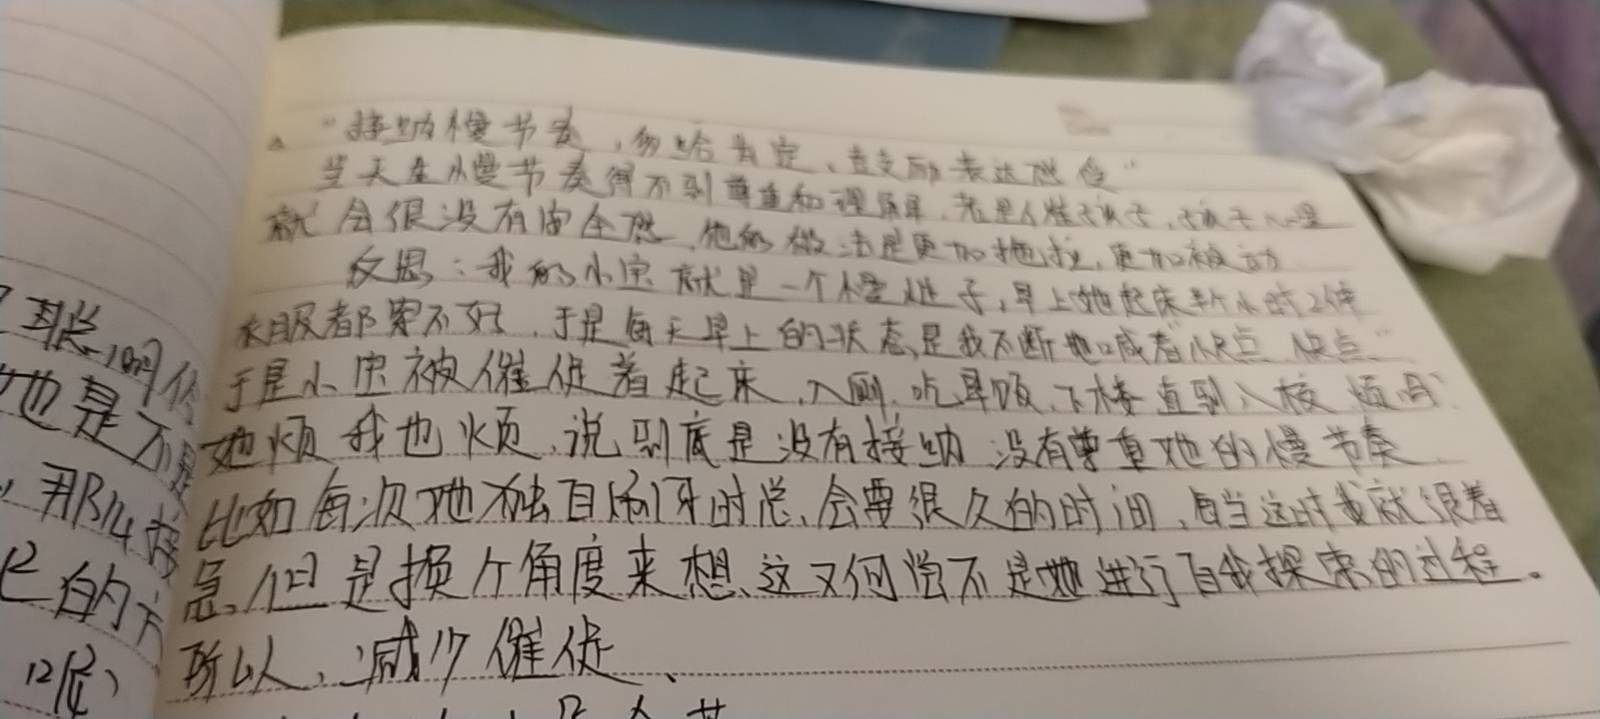 "接纳慢节奏,多给肯定、去鼓励表达感受"
当天生慢节奏得不到尊重和理解,老是催孩子,孩子心里
就会很没有安全感,他的做法是更加拖拉,更加被动
反思:我的小宝就是一个慢性子,早上她起床半个小时2件
衣服都穿不好,于是每天早上的状态,是我不断地喊着"快点 快点"
于是小宝被催促着起床、入厕、吃早饭、下楼直到入校
她烦我也烦,说到底是没有接纳 没有尊重她的慢节奏
比如每次她独自刷牙时总会要很久的时间,每当这时我就很着
急,但是换个角度来想、这又何尝不是她进行自我探索的过程。
所以,减少催促、
她也是不是
那么接
的方